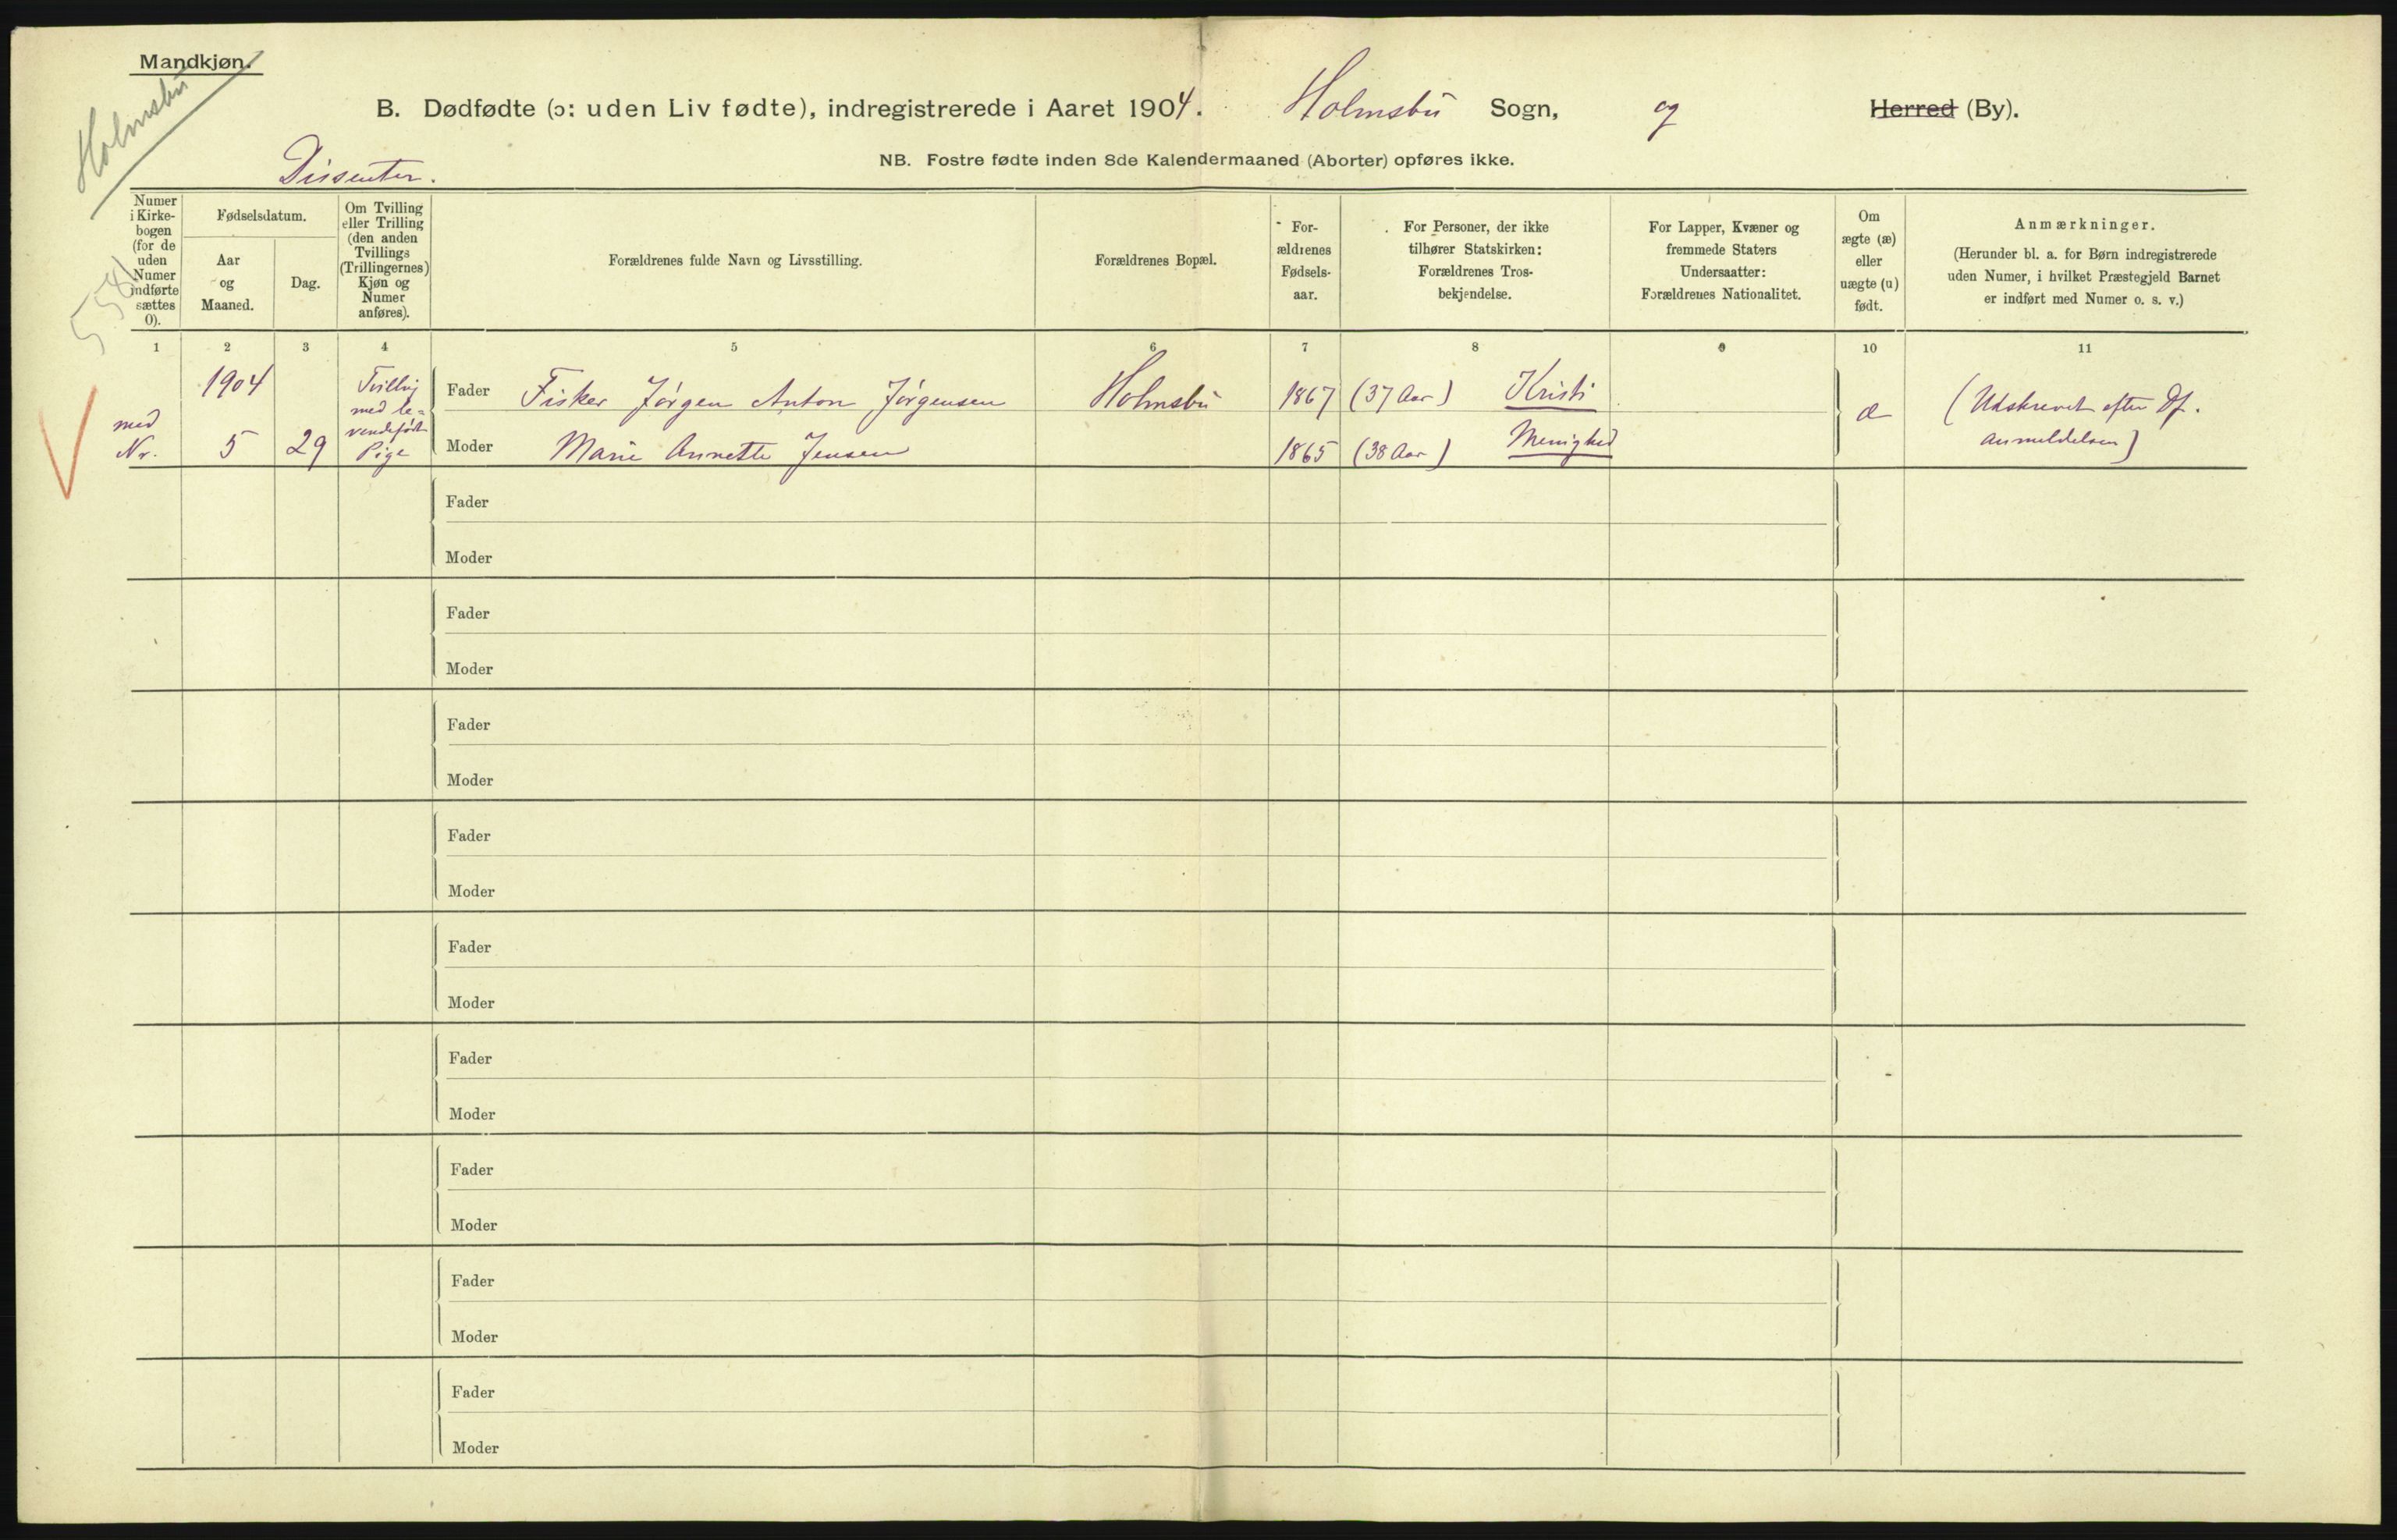 Mandkjøn.
Holmsbu
B. Dødfødte (ɔ: uden Liv fødte), indregistrerede i Aaret 1904. Holmsbu Sogn, og Herred (By).
NB. Fostre fødte inden 8de Kalendermaaned (Aborter) opføres ikke.
Dissenter.
Numer
i Kirke-
bogen
(for de
uden
Numer
indførte
sættes
0).
Fødselsdatum.
Aar
og
Maaned.
Dag.
Om Tvilling
eller Trilling
(den anden
Tvillings
(Trillingernes)
Kjøn og
Numer
anføres).
Forældrenes fulde Navn og Livsstilling.
Forældrenes Bopæl.
For-
ældrenes
Fødsels-
aar.
For Personer, der ikke
tilhører Statskirken:
Forældrenes Tros-
bekjendelse.
For Lapper, Kvæner og
fremmede Staters
Undersaatter:
Forældrenes Nationalitet.
Om
ægte (æ)
eller
uægte (u)
født.
Anmærkninger.
(Herunder bl. a. for Børn indregistrerede
uden Numer, i hvilket Præstegjeld Barnet
er indført med Numer o. s. v.)
1 2 3 4 5 6 7 8 9 10 11
med
Nr.
1904
5 29
Tvilling
med le-
vendefødt
Pige
Fader Fisker Jørgen Anton Jørgensen Holmsbu 1867 (37 Aar) Kristi
Moder Marie Annette Jensen 1865 (38 Aar) Menighed
æ
(Udskrevet efter Df.
anmeldelsen)
Fader
Moder
Fader
Moder
Fader
Moder
Fader
Moder
Fader
Moder
Fader
Moder
Fader
Moder
Fader
Moder
Fader
Moder